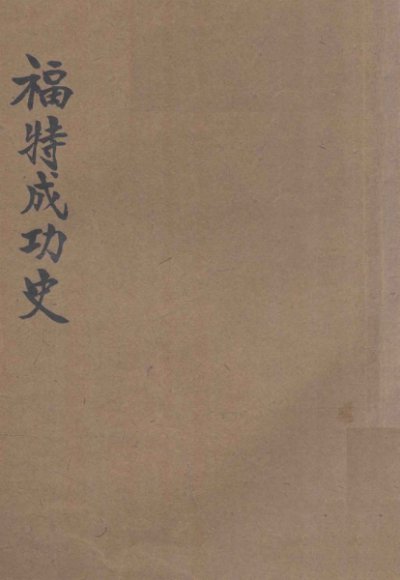 福特成功史